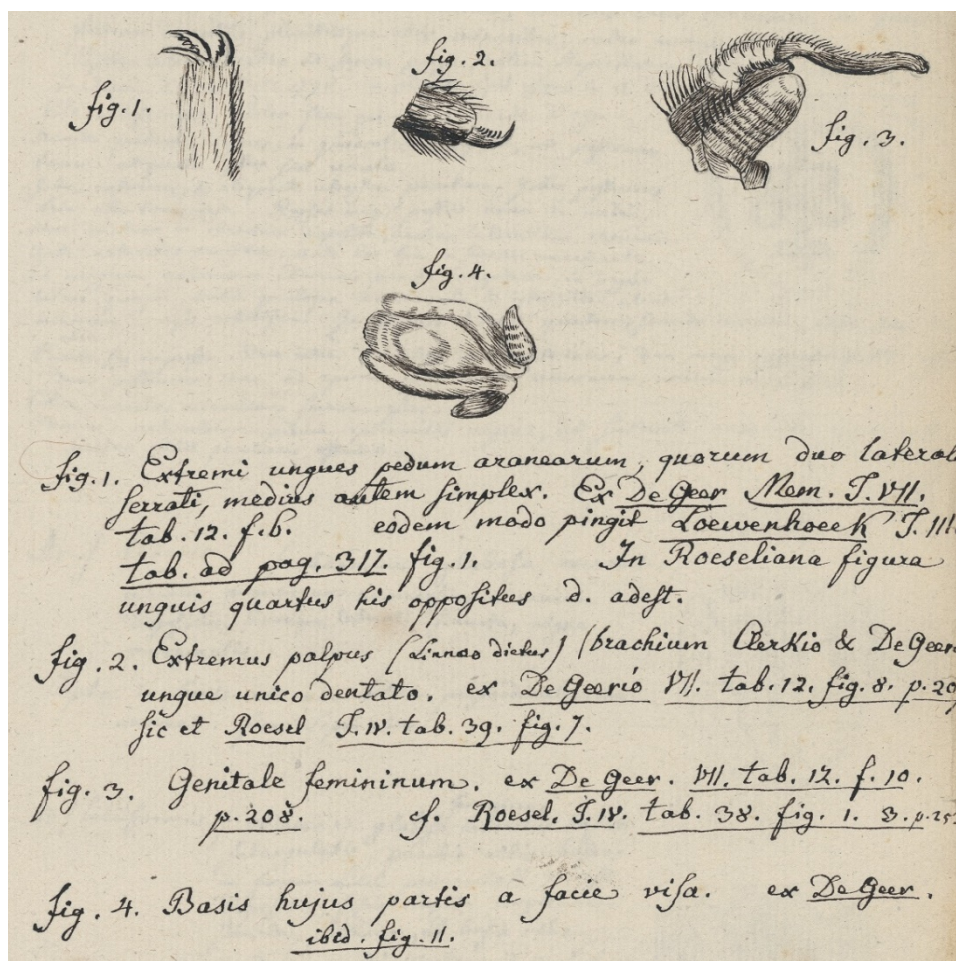 fig. 1.
fig. 2.
fig. 3.
fig. 4.
fig. 1. Extremi ungues pedum aranearum, quorum duo laterali
serrati, medius autem simplex. Ex De Geer Mem. T. VII.
tab. 12. f. 6. eodem modo pingit Loewenhoeck T. III.
tab. ad pag. 317. fig. 1. In Roeseliana figura
unguis quartus his oppositus d. adest.
fig. 2. Extremus palpus (Linnæo dictus) (brachium Clerkio & De Geer
ungue unico dentato. ex De Geerio VII. tab. 12. fig. 8. p. 20
sic et Roesel T. IV. tab. 39. fig. 7.
fig. 3. Genitale femininum. ex De Geer. VII. tab. 12. f. 10.
p. 208. cf. Roesel. T. IV. tab. 38. fig. 1. 3. p. 25
fig. 4. Basis hujus partis a facie visa. ex De Geer.
ibid. fig. 11.